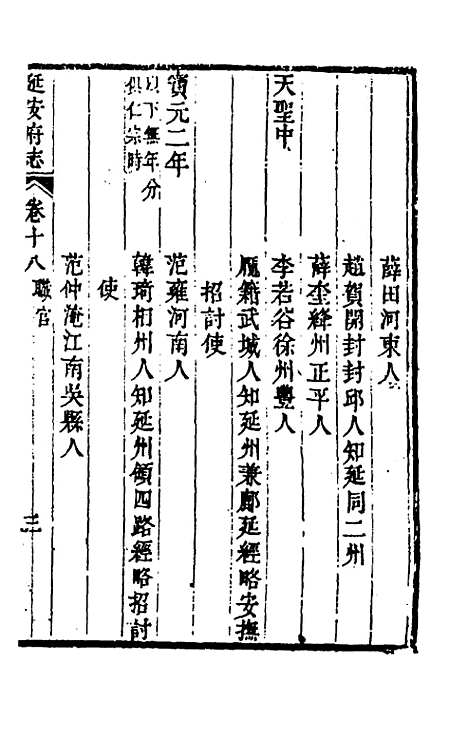 薛田河東人
趙賀開封封邱人知延同二州
薛奎絳州正平人
天聖中
李若谷徐州豐人
龐籍武城人知延州兼鄜延經略安撫
招討使
寶元二年
范雍河南人
以下無年分
俱仁宗時
韓琦相州人知延州領四路經略招討
使
范仲淹江南吳縣人
延安府志
卷十八
職官
三